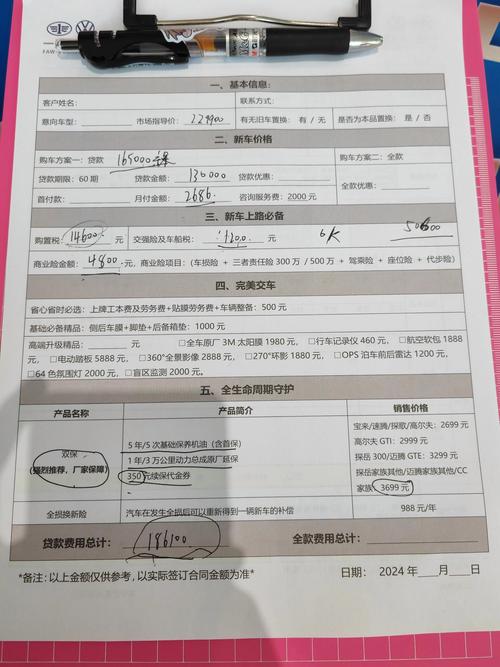 FAW
一、基本信息:
客户姓名: 联系方式:
意向车型: 市场指导价: 229900 有无旧车置换: 有 / 无 是否为本品置换: 是 / 否
二、新车价格
购车方案一: 贷款 165000 购车方案二: 全款
贷款期限: 60 期 贷款金额: 130000 贷款优惠: 全款优惠:
首付款: 月付金额: 2686 咨询服务费: 2000 元
三、新车上路必备
购置税: 14600 元 交强险及车船税: 1200 元 6K
商业险金额: 4800 元, 商业险项目: (车损险 + 三者责任险 300 万 / 500 万 + 驾乘险 + 座位险 + 代步险)
四、完美交车
省心省时必选: 上牌工本费及劳务费+贴膜劳务费+车辆整备: 500 元
基础必备精品: 侧后车膜+脚垫+后备箱垫: 1000 元
高端升级精品: 元 □全车原厂 3M 太阳膜 1980 元, □行车记录仪 460 元, □航空软包 1888
元, □电动踏板 5888 元, □360°全景影像 2888 元, □270°环影 1880 元, □OPS 泊车前后雷达 1200 元,
□64 色氛围灯 2000 元, □盲区监测 2000 元,
五、全生命周期守护
产品名称 产品简介 销售价格
双保
(强烈推荐, 厂家保障)
5 年/5 次基础保养机油 (含首保)
1 年/3 万公里动力总成原厂延保
350 元续保代金券
宝来/速腾/探歌/高尔夫: 2699 元
高尔夫 GTI: 2999 元
探岳 300/迈腾 GTE: 3299 元
探岳家族其他/迈腾家族其他/CC
家族: 3699 元
全损换新险 汽车在发生全损后可以重新得到一辆新车的补偿 988 元/年
贷款费用总计: 186100 全款费用总计:
*备注: 以上金额仅供参考, 以实际签订合同金额为准* 日期: 2024 年 月 日